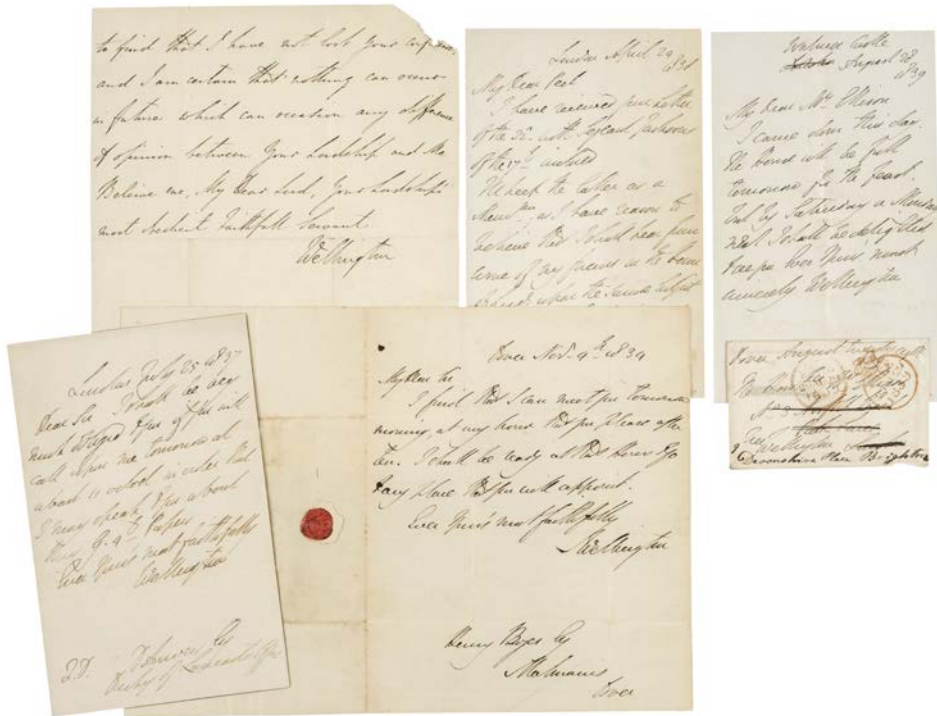 to find that I have not lost your confidence,
and I am certain that nothing can occur
in future which can occasion any difference
of opinion between Your Lordship and Me
Believe me, My Dear Lord, Your Lordship's
most obedient faithfull Servant
Wellington
London April 29
1838
My Dear Peel
I have received your Letter
of the 23. with
of the 17th inclosed
the latter as a
as I have reason to
believe that I shall hear from
some of my friends in the
Walmer Castle
August 28
1839
My Dear Mrs. Ellison
I came down this day.
The House will be full
tomorrow for the
but by Saturday or Monday
next I shall be delighted
to see you Ever Yours most
sincerely Wellington
Dover August twenty
Wellington
9 Devonshire Place Brighton
London July 25 1837
Dear Sir I shall be very
much obliged to you if you will
call upon me tomorrow at
about 11 o'clock in order that
I may speak to you about
the Papers
Ever Yours most faithfully
Wellington
Esq
Duchy of Lancaster Office
Dover Novr. 9th 1839
My Dear Sir
I find that I can meet you tomorrow
morning, at any hour that you please after
Ten. I shall be ready at that hour to go
to any place that you will appoint.
Ever Yours most faithfully
Wellington
Henry Esq
Dover